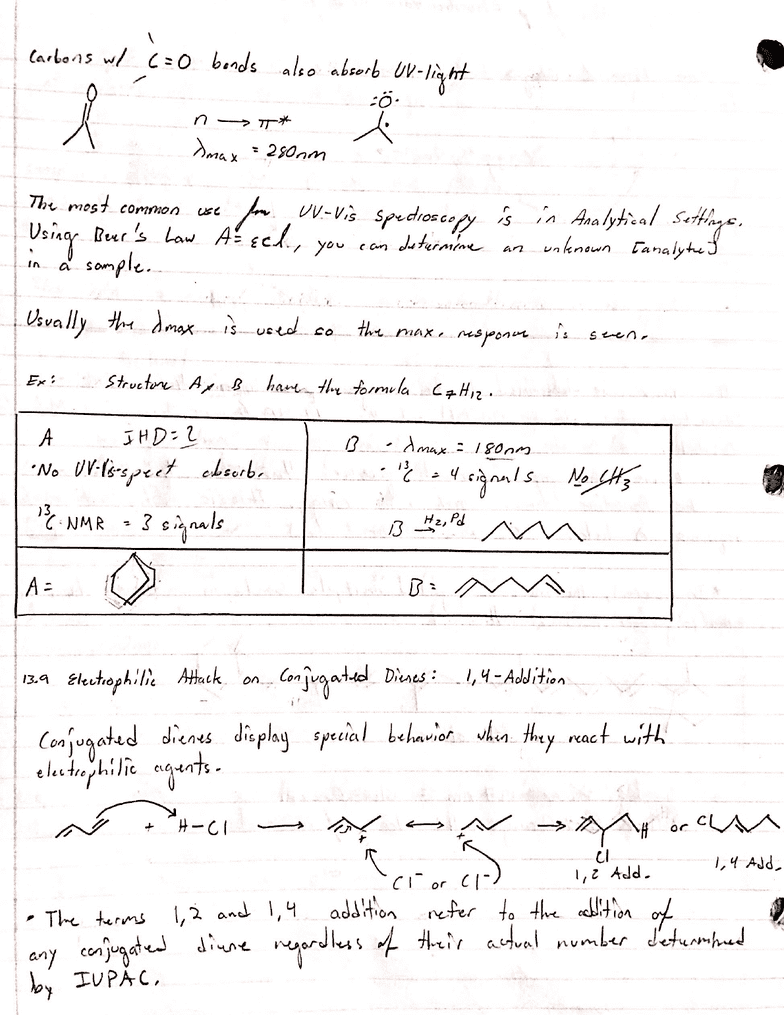 Carbons w/ C=O bonds also absorb UV-light
O
:Ö·
n → π*
λmax = 280nm
The most common use for UV-Vis Spectroscopy is in Analytical Settings.
Using Beer's Law A=εcl, you can determine an unknown [analyte]
in a sample.
Usually the λmax is used so the max. response is seen.
Ex: Structure A & B have the formula C7H12.
A IHD=2
·No UV-Vis-spect absorb.
13C-NMR = 3 signals
B - λmax = 180nm
- 13C = 4 signals No CH3
B H2, Pd →
A=
B=
13.9 Electrophilic Attack on Conjugated Dienes: 1,4-Addition
Conjugated dienes display special behavior when they react with
electrophilic agents.
+ H-Cl → + ↔ + → H or Cl
Cl
Cl⁻ or Cl⁻
1,2 Add.
1,4 Add.
• The terms 1,2 and 1,4 addition refer to the addition of
any conjugated diene regardless of their actual number determined
by IUPAC.